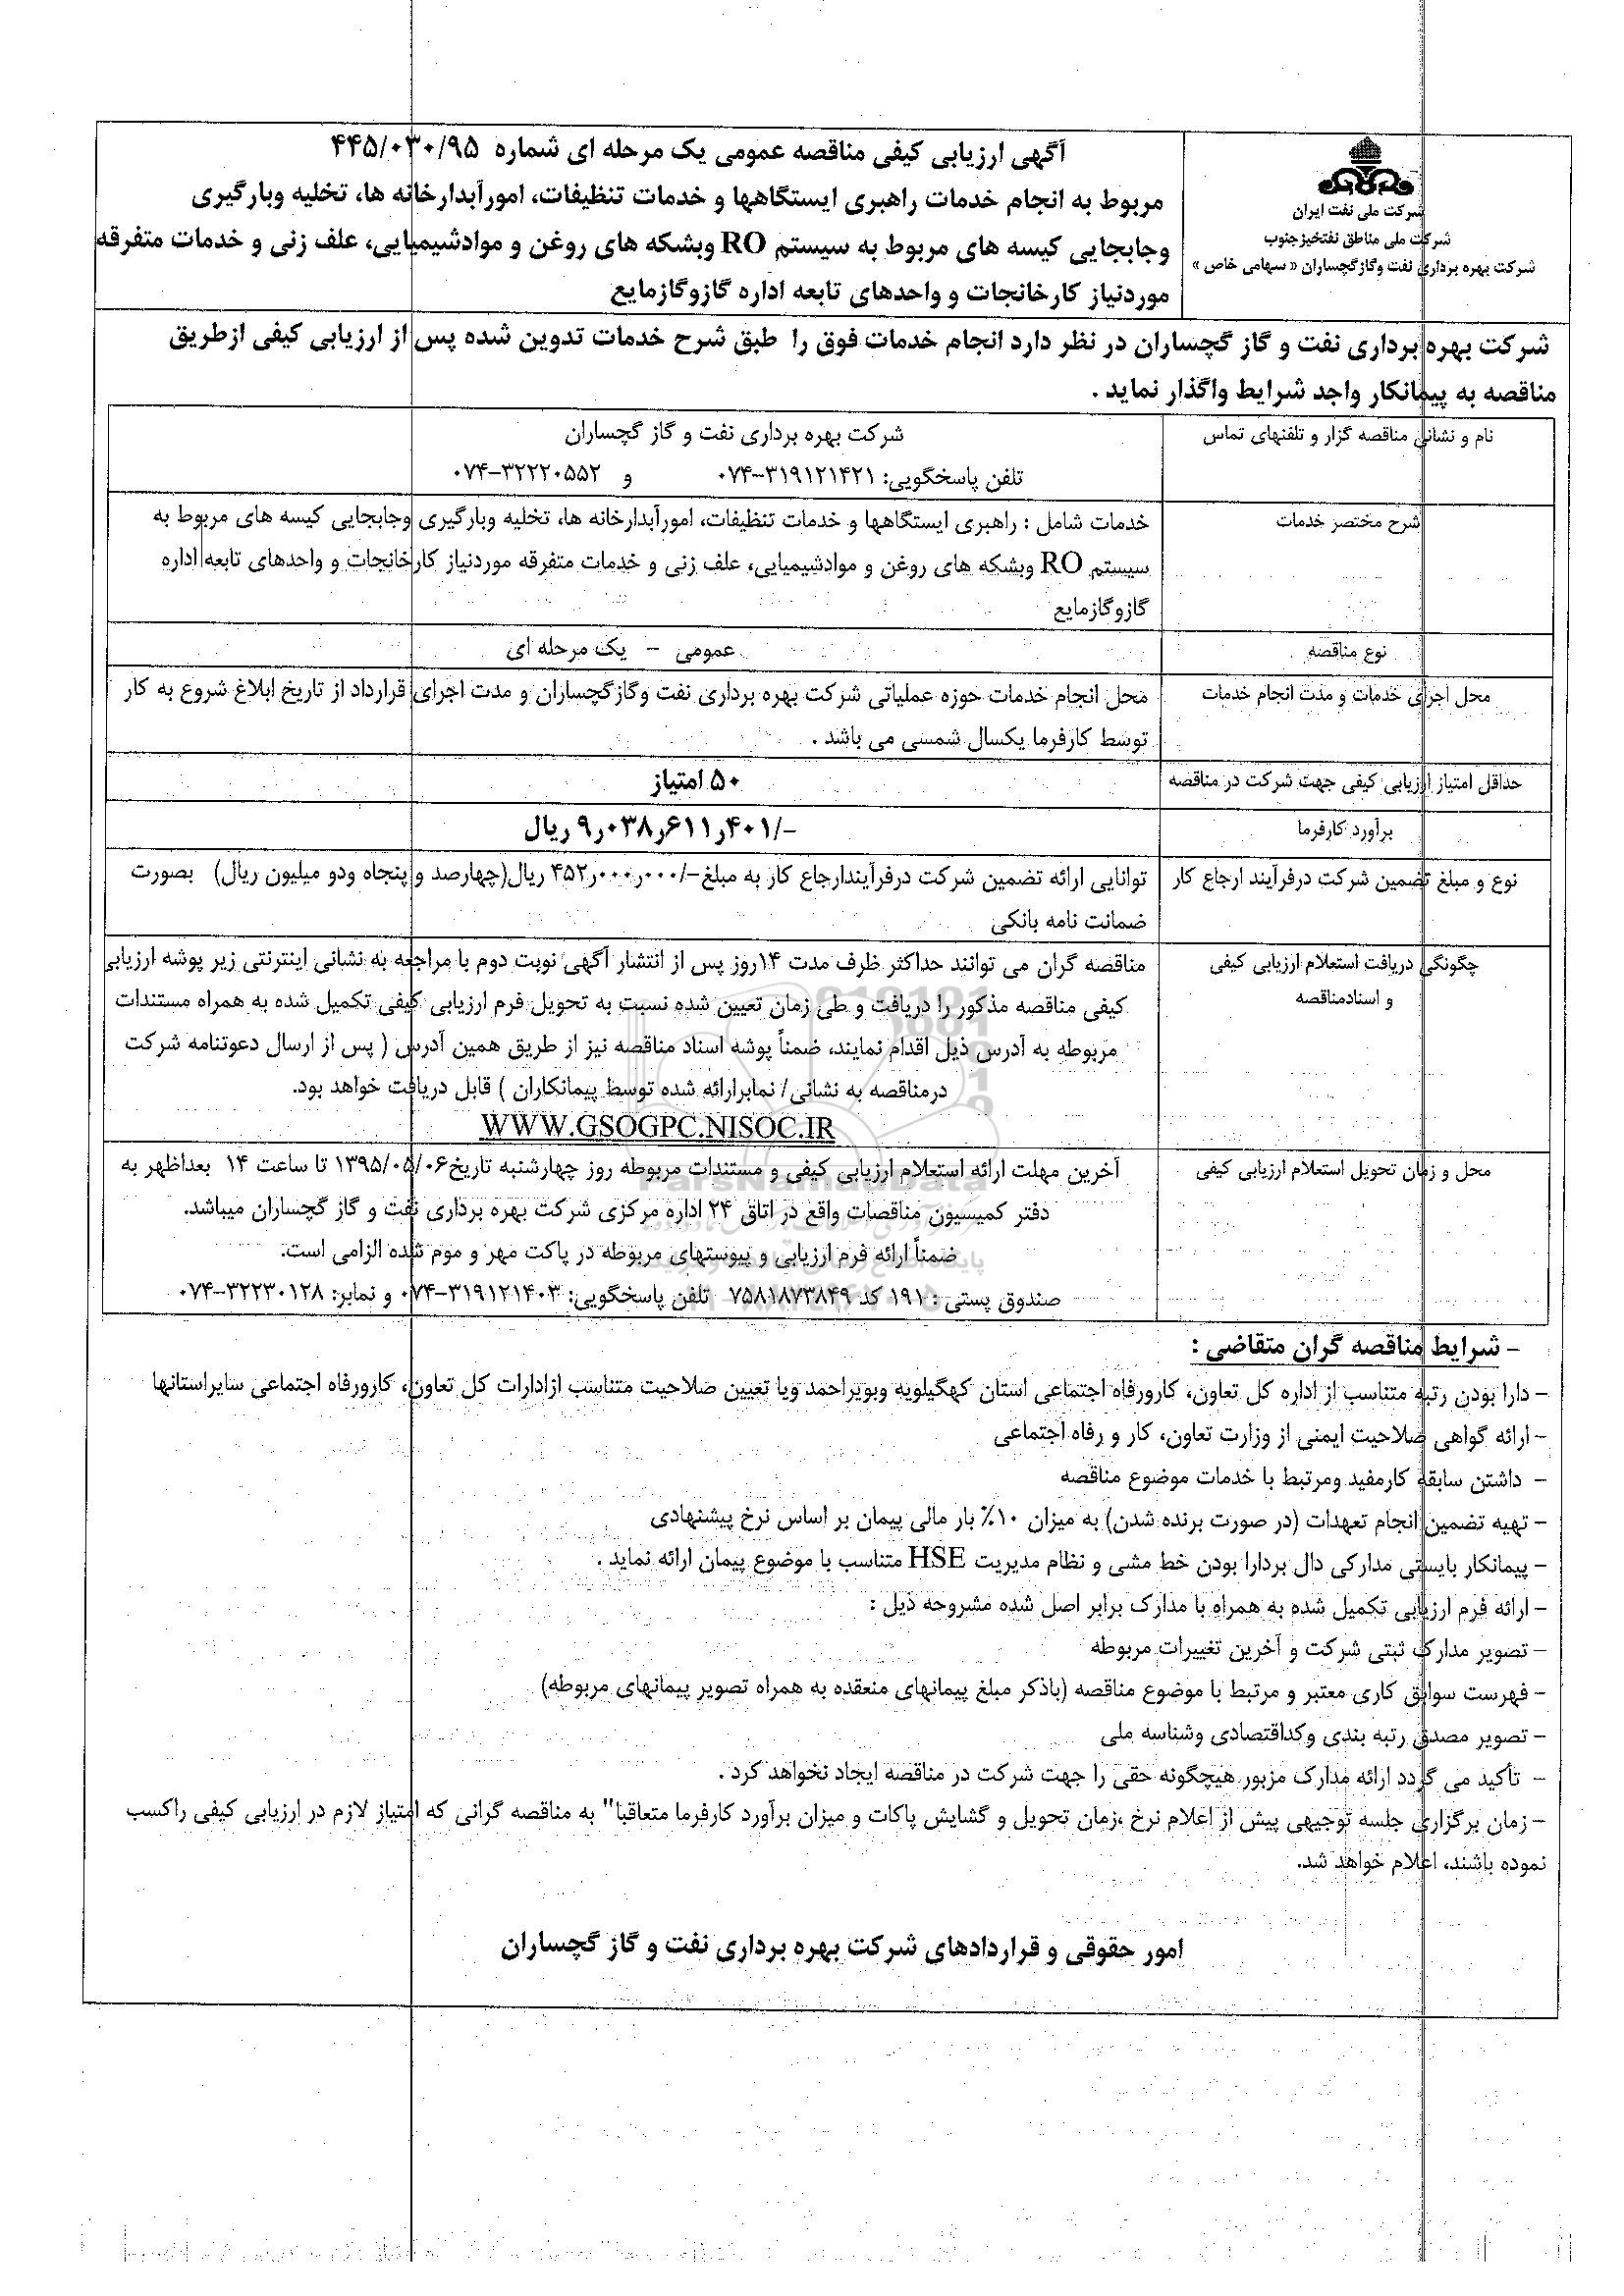 شرکت ملی نفت ایران
شرکت ملی مناطق نفتخیزجنوب
شرکت بهره برداری نفت وگازگچساران « سهامی خاص »
آگهی ارزیابی کیفی مناقصه عمومی یک مرحله ای شماره ۴۴۵/۰۳۰/۹۵
مربوط به انجام خدمات راهبری ایستگاهها و خدمات تنظیفات، امورآبدارخانه ها، تخلیه وبارگیری
وجابجایی کیسه های مربوط به سیستم RO وبشکه های روغن و موادشیمیایی، علف زنی و خدمات متفرقه
موردنیاز کارخانجات و واحدهای تابعه اداره گازوگازمایع
شرکت بهره برداری نفت و گاز گچساران در نظر دارد انجام خدمات فوق را طبق شرح خدمات تدوین شده پس از ارزیابی کیفی ازطریق
مناقصه به پیمانکار واجد شرایط واگذار نماید .
نام و نشانی مناقصه گزار و تلفنهای تماس
شرکت بهره برداری نفت و گاز گچساران
تلفن پاسخگویی: ۳۱۹۱۲۱۴۲۱-۰۷۴ و ۳۲۲۲۰۵۵۲-۰۷۴
شرح مختصر خدمات
خدمات شامل : راهبری ایستگاهها و خدمات تنظیفات، امورآبدارخانه ها، تخلیه وبارگیری وجابجایی کیسه های مربوط به
سیستم RO وبشکه های روغن و موادشیمیایی، علف زنی و خدمات متفرقه موردنیاز کارخانجات و واحدهای تابعه اداره
گازوگازمایع
نوع مناقصه
عمومی - یک مرحله ای
محل اجرای خدمات و مدت انجام خدمات
محل انجام خدمات حوزه عملیاتی شرکت بهره برداری نفت وگازگچساران و مدت اجرای قرارداد از تاریخ ابلاغ شروع به کار
توسط کارفرما یکسال شمسی می باشد .
حداقل امتیاز ارزیابی کیفی جهت شرکت در مناقصه
۵۰ امتیاز
برآورد کارفرما
-/۹ر۰۳۸ر۶۱۱ر۴۰۱ ریال
نوع و مبلغ تضمین شرکت درفرآیند ارجاع کار
توانایی ارائه تضمین شرکت درفرآیندارجاع کار به مبلغ-/۴۵۲ر۰۰۰ر۰۰۰ ریال(چهارصد و پنجاه ودو میلیون ریال) بصورت
ضمانت نامه بانکی
چگونگی دریافت استعلام ارزیابی کیفی
و اسنادمناقصه
مناقصه گران می توانند حداکثر ظرف مدت ۱۴روز پس از انتشار آگهی نوبت دوم با مراجعه به نشانی اینترنتی زیر پوشه ارزیابی
کیفی مناقصه مذکور را دریافت و طی زمان تعیین شده نسبت به تحویل فرم ارزیابی کیفی تکمیل شده به همراه مستندات
مربوطه به آدرس ذیل اقدام نمایند، ضمناً پوشه اسناد مناقصه نیز از طریق همین آدرس ( پس از ارسال دعوتنامه شرکت
درمناقصه به نشانی/ نمابرارائه شده توسط پیمانکاران ) قابل دریافت خواهد بود.
WWW.GSOGPC.NISOC.IR
محل و زمان تحویل استعلام ارزیابی کیفی
آخرین مهلت ارائه استعلام ارزیابی کیفی و مستندات مربوطه روز چهارشنبه تاریخ۱۳۹۵/۰۵/۰۶ تا ساعت ۱۴ بعداظهر به
دفتر کمیسیون مناقصات واقع در اتاق ۲۴ اداره مرکزی شرکت بهره برداری نفت و گاز گچساران میباشد.
ضمناً ارائه فرم ارزیابی و پیوستهای مربوطه در پاکت مهر و موم شده الزامی است.
صندوق پستی : ۱۹۱ کد ۷۵۸۱۸۷۳۸۴۹ تلفن پاسخگویی: ۳۱۹۱۲۱۴۰۳-۰۷۴ و نمابر: ۳۲۲۳۰۱۲۸-۰۷۴
- شرایط مناقصه گران متقاضی :
- دارا بودن رتبه متناسب از اداره کل تعاون، کارورفاه اجتماعی استان کهگیلویه وبویراحمد ویا تعیین صلاحیت متناسب ازادارات کل تعاون، کارورفاه اجتماعی سایراستانها
- ارائه گواهی صلاحیت ایمنی از وزارت تعاون، کار و رفاه اجتماعی
- داشتن سابقه کارمفید ومرتبط با خدمات موضوع مناقصه
- تهیه تضمین انجام تعهدات (در صورت برنده شدن) به میزان ۱۰٪ بار مالی پیمان بر اساس نرخ پیشنهادی
- پیمانکار بایستی مدارکی دال بردارا بودن خط مشی و نظام مدیریت HSE متناسب با موضوع پیمان ارائه نماید .
- ارائه فرم ارزیابی تکمیل شده به همراه با مدارک برابر اصل شده مشروحه ذیل :
- تصویر مدارک ثبتی شرکت و آخرین تغییرات مربوطه
- فهرست سوابق کاری معتبر و مرتبط با موضوع مناقصه (باذکر مبلغ پیمانهای منعقده به همراه تصویر پیمانهای مربوطه)
- تصویر مصدق رتبه بندی وکداقتصادی وشناسه ملی
- تأکید می گردد ارائه مدارک مزبور هیچگونه حقی را جهت شرکت در مناقصه ایجاد نخواهد کرد .
- زمان برگزاری جلسه توجیهی پیش از اعلام نرخ ،زمان تحویل و گشایش پاکات و میزان برآورد کارفرما متعاقبا" به مناقصه گرانی که امتیاز لازم در ارزیابی کیفی راکسب
نموده باشند، اعلام خواهد شد.
امور حقوقی و قراردادهای شرکت بهره برداری نفت و گاز گچساران